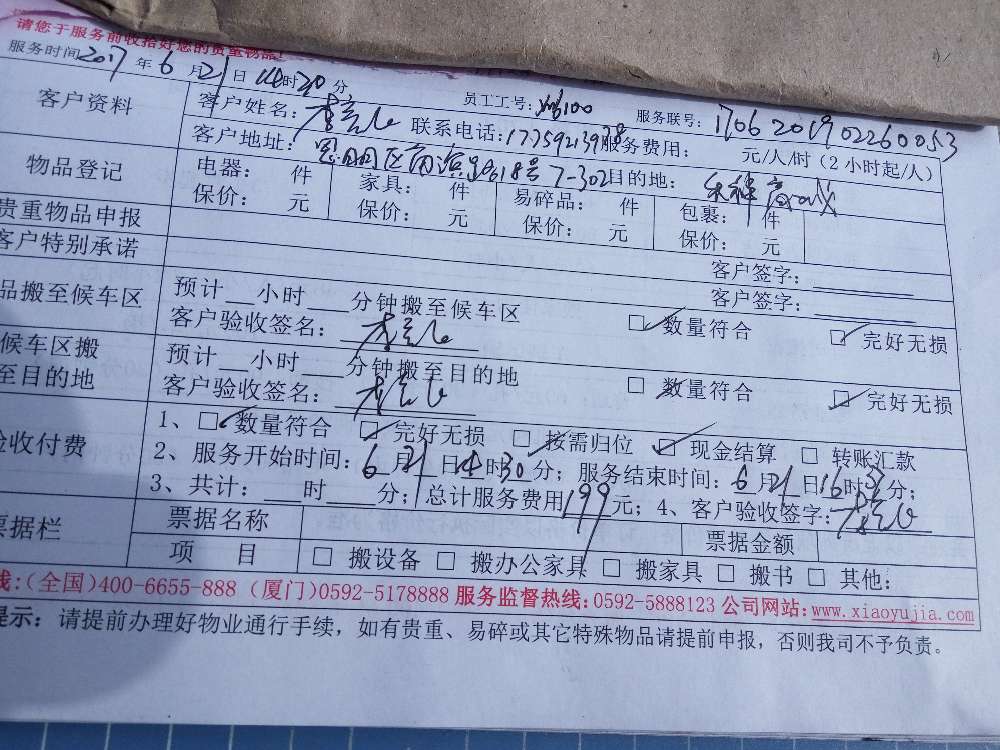 请您于服务前收拾好您的贵重物品!
服务时间2017年6月21日14时30分 员工工号: 服务联号:1706201902260053
客户资料 客户姓名: 联系电话: 服务费用: 元/人/时(2小时起/人)
客户地址: 618号7-302 目的地:
物品登记 电器: 件 家具: 件 易碎品: 件 包裹: 件
保价: 元 保价: 元 保价: 元 保价: 元
贵重物品申报 客户签字:
客户特别承诺 客户签字:
品搬至候车区 预计__小时____分钟搬至候车区 □数量符合 □完好无损
客户验收签名:
候车区搬至目的地 预计__小时____分钟搬至目的地 □数量符合 □完好无损
客户验收签名:
验收付费 1、□数量符合 □完好无损 □按需归位 □现金结算 □转账汇款
2、服务开始时间:6月21日14时30分;服务结束时间:6月21日16时分;
3、共计:___时____分;总计服务费用199元;4、客户验收签字:
票据栏 票据名称 票据金额
项 目 □搬设备 □搬办公家具 □搬家具 □搬书 □其他:
线:(全国)400-6655-888(厦门)0592-5178888 服务监督热线:0592-5888123 公司网站:www.xiaoyujia.com
提示:请提前办理好物业通行手续,如有贵重、易碎或其它特殊物品请提前申报,否则我司不予负责。